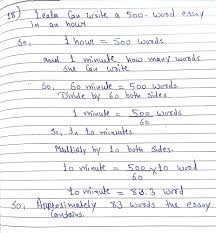 18) Leala Can write a 500-word essay
in an hour
So, 1 hour = 500 words.
and 1 minute how many words
she Can write
So, 60 minute = 500 words
Divide by 60 both sides
1 minute = 500 words
60
So, In 10 minutes.
Multiply by 10 both sides.
10 minute = 500 x 10 word
60
10 minute = 83.3 word
So, Approximately 83 words the essay
Contains.